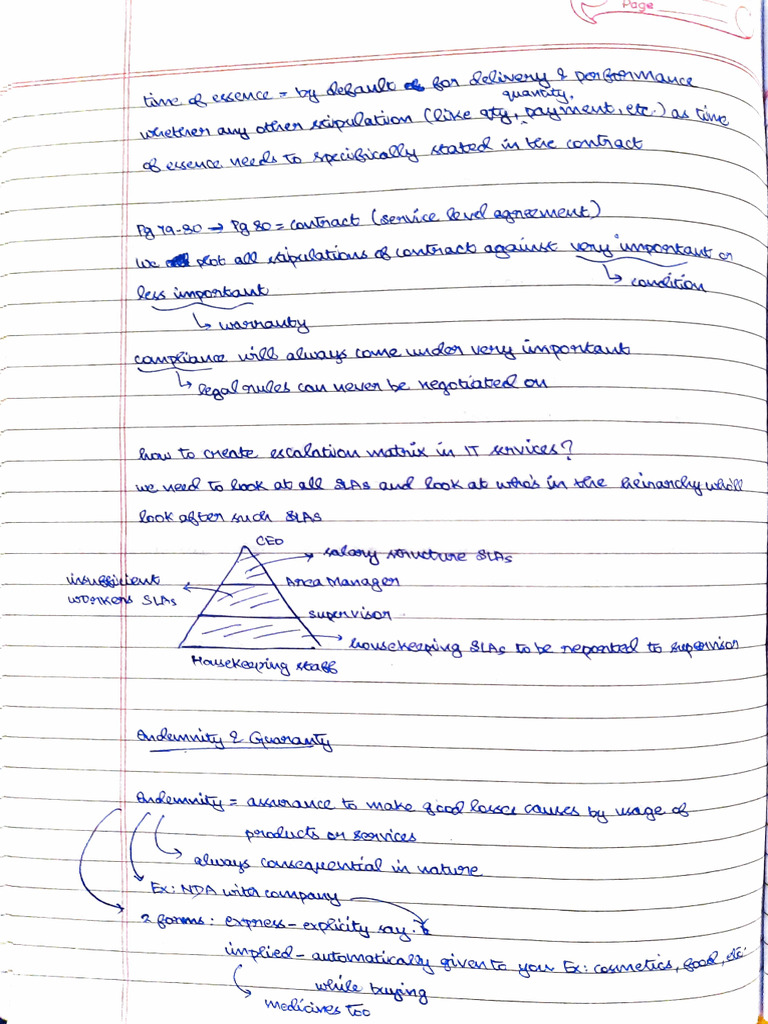 Page
time of essence = by default for delivery & performance
quantity,
whether any other stipulation (like qty, payment, etc.) as time
of essence needs to specifically stated in the contract
Pg 79-80 → Pg 80 = contract (service level agreement)
we plot all stipulations of contract against very important or
↳ condition
less important
↳ warranty
compliance will always come under very important
↳ legal rules can never be negotiated on
how to create escalation matrix in IT services?
we need to look at all SLAs and look at who's in the heirarchy who'll
look after such SLAs
CEO
→ salary structure SLAs
insufficient
workers SLAs
Area Manager
supervisor
→ housekeeping SLAs to be reported to supervisor
Housekeeping staff
Indemnity & Guaranty
Indemnity = assurance to make good losses causes by usage of
products or services
always consequential in nature
Ex: NDA with company
2 forms: express – explicity say.
implied – automatically given to you Ex: cosmetics, food, etc
while buying
medicines too